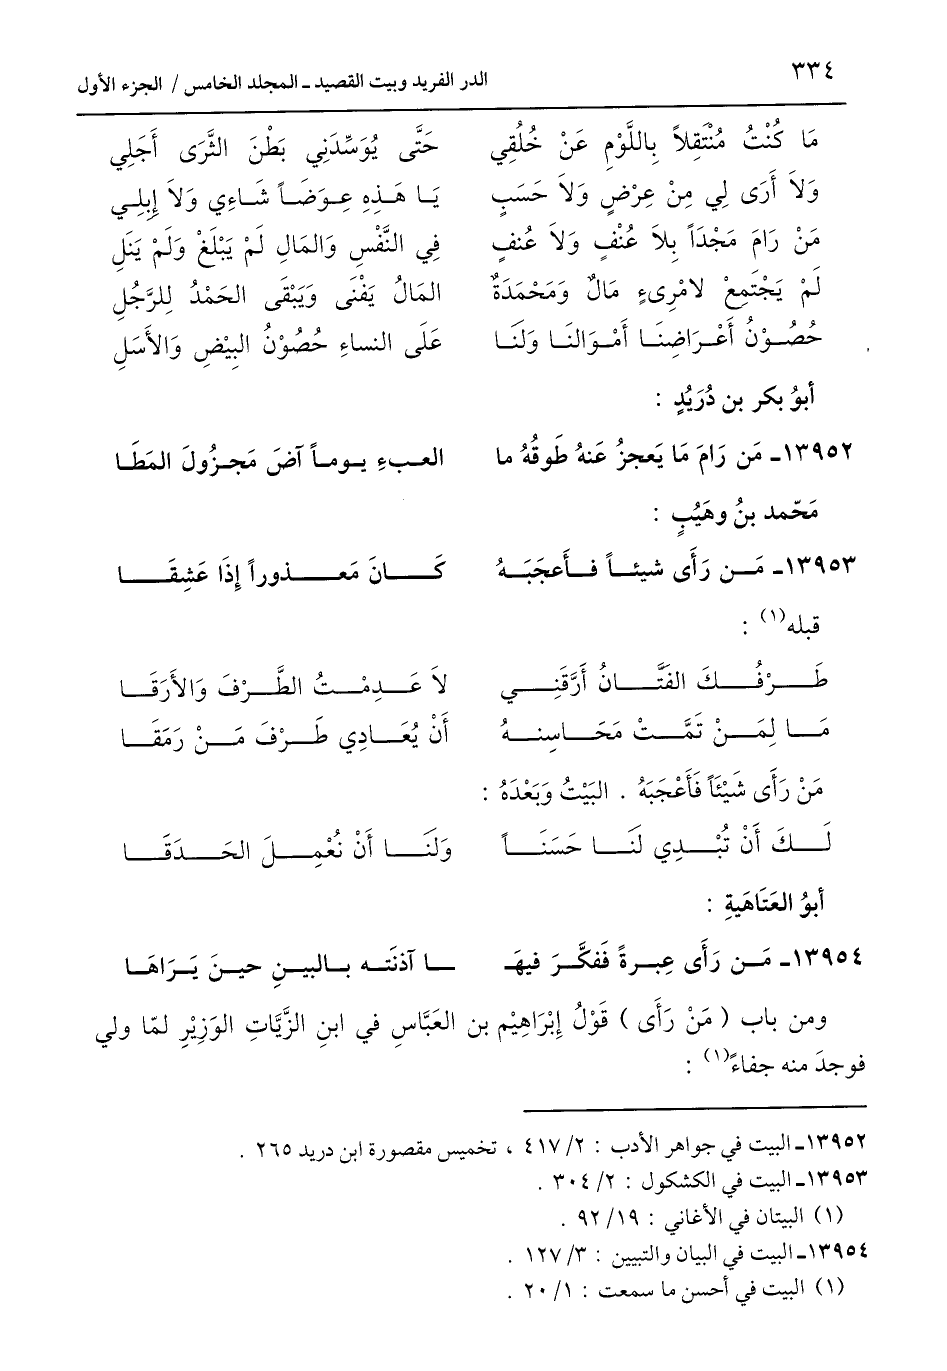 ٣٣٤
الدر الفريد وبيت القصيد ـ المجلد الخامس / الجزء الأول
مَا كُنْتُ مُنْتَقِلاً بِاللَّوْمِ عَنْ خُلُقِي حَتَّى يُوَسِّدَنِي بَطْنَ الثَّرَى أَجَلِي
وَلاَ أَرَى لِي مِنْ عِرْضٍ وَلاَ حَسَبٍ يَا هَذِهِ عِوَضَاً شَاءِي وَلاَ إِبِلِي
مَنْ رَامَ مَجْدَاً بِلاَ عُنْفٍ وَلاَ عُنفٍ فِي النَّفْسِ وَالمَالِ لَمْ يَبْلَغْ وَلَمْ يَنَلِ
لَمْ يَجْتَمِعْ لامْرِىءٍ مَالٌ وَمَحْمَدَةٌ المَالُ يَفْنَى وَيَبْقَى الحَمْدُ لِلرَّجُلِ
حُصُوْنُ أَعْرَاضِنَا أَمْوَالنَا وَلَنَا عَلَى النساءِ حُصُوْنُ البِيْضِ وَالأَسَلِ
أبوُ بكر بن دُرَيْدٍ :
١٣٩٥٢ـ مَن رَامَ مَا يَعجزُ عَنهُ طَوقُهُ ما العبءِ يوماً آضَ مَجزُولَ المَطَا
مَحّمد بنُ وهَيْبٍ :
١٣٩٥٣ـ مَن رَأى شيئاً فأعجَبَهُ كَانَ مَعذوراً إذَا عَشِقَا
قبله(١) :
طَرْفُكَ الفَتَّانُ أَرَّقَنِي لاَ عَدِمْتُ الطَّرْفَ وَالأَرَقَا
مَا لِمَنْ تَمَّتْ مَحَاسِنهُ أَنْ يُعَادِي طَرْفَ مَنْ رَمَقَا
مَنْ رَأَى شَيْئَاً فَأَعْجَبَهُ . البَيْتُ وَبَعْدَهُ :
لَكَ أَنْ تُبْدِي لَنَا حَسَنَاً وَلَنَا أَنْ نُعْمِلَ الحَدَقَا
أبوُ العَتَاهَيةِ :
١٣٩٥٤ـ مَن رَأى عِبرةً فَفكَّرَ فيهَـ ـا آذنَته بالبينِ حينَ يَرَاهَا
ومن باب ( مَنْ رَأَى ) قَوْلُ إِبْرَاهِيْم بن العَبَّاسِ في ابنِ الزَّيَّاتِ الوَزِيْرِ لمّا ولي
فوجدَ منه جفاءً(١) :
١٣٩٥٢ـ البيت في جواهر الأدب : ٢/ ٤١٧ ، تخميس مقصورة ابن دريد ٢٦٥ .
١٣٩٥٣ـ البيت في الكشكول : ٢/ ٣٠٤ .
(١) البيتان في الأغاني : ١٩/ ٩٢ .
١٣٩٥٤ـ البيت في البيان والتبيين : ٣/ ١٢٧ .
(١) البيت في أحسن ما سمعت : ١/ ٢٠ .